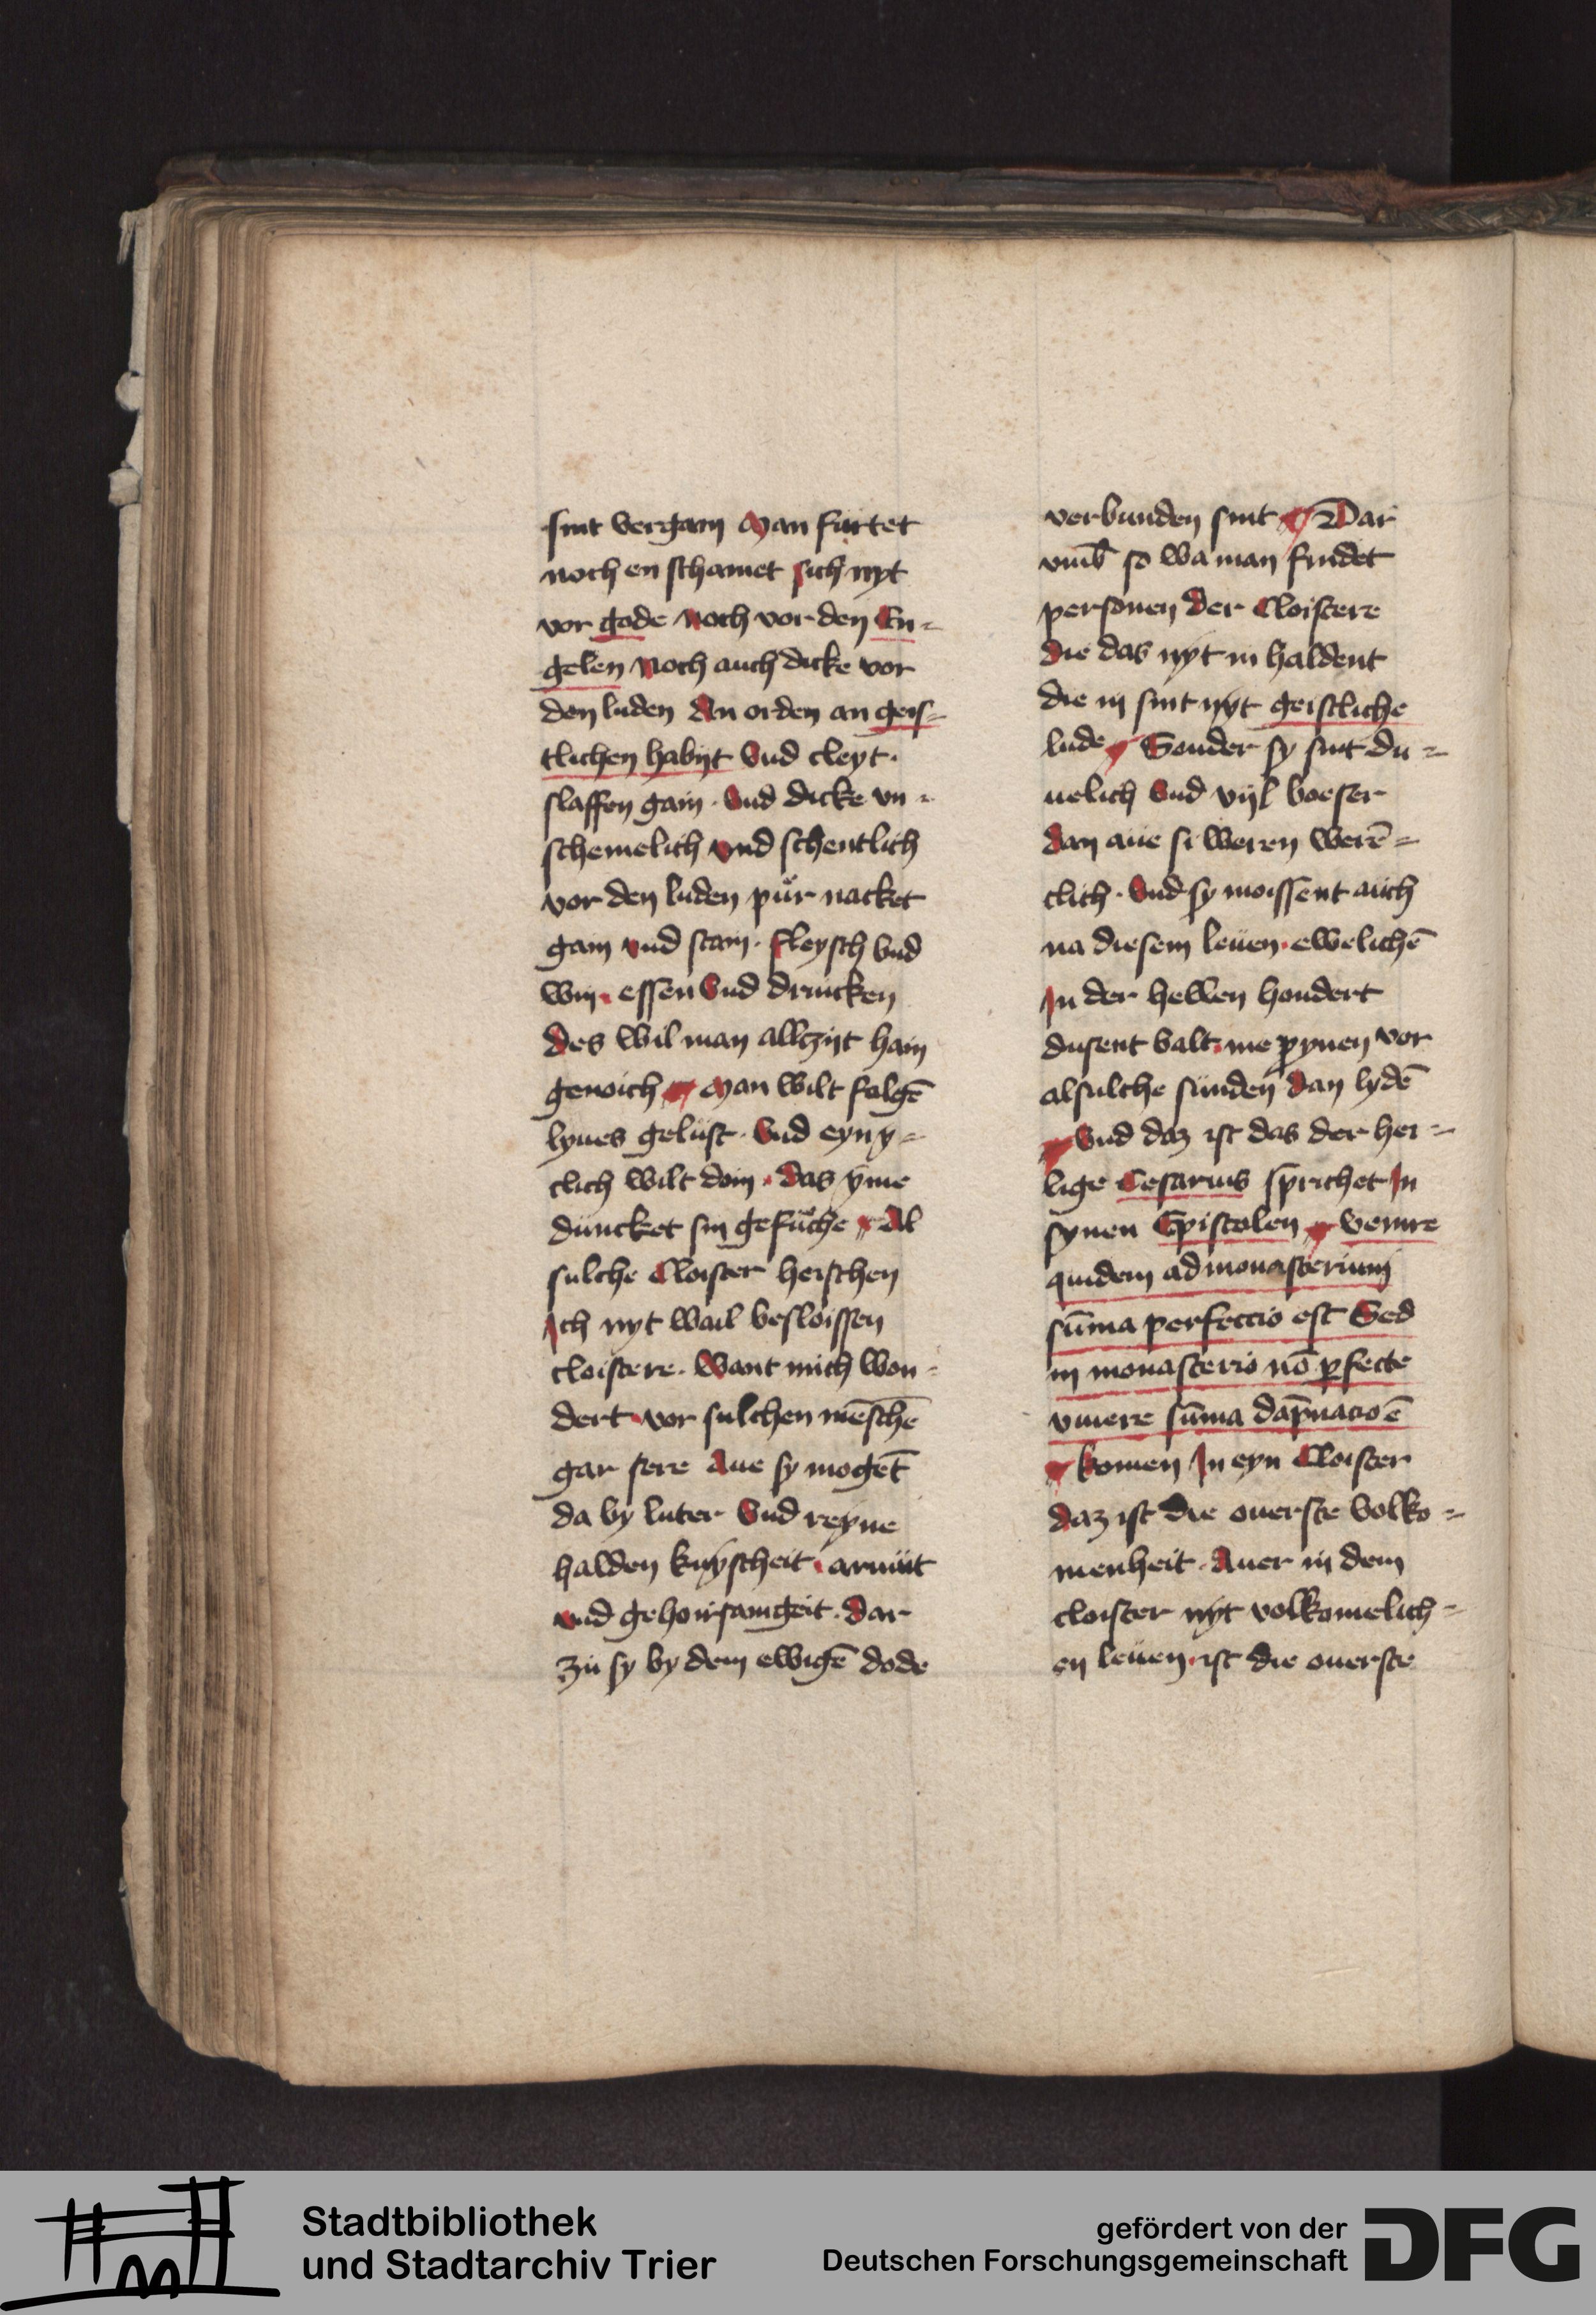 sint vergain Man furtet
noch en schamet sich nyt
vor gode Noch vor den En-
gelen Noch auch dicke vor
den luden An orden an geis-
tlichen habijt Vnd cleyt.
slaffen gain. Vnd dicke vn-
schemelich vnd schentlich
vor den luden pür nacket
gain vnd stain. Fleysch Vnd
win. essen Vnd drincken
des wil man allzijt hain
genoich Man wilt folgē
lyues gelust. Vnd eyn y-
clich wilt doin. das yme
duncket sin gefuche Al
sulche Cloister heischen
Ich nyt wail besloissen
cloistere. Want mich won-
dert vor sulchen mēschē
gar sere Aue sy mogēt
da by luter Vnd reyne
halden kuyscheit. armüt
vnd gehoirsamgeit. Dar
zu sy by dem ewigē dode
verbunden sint Dar
vmb so wa man findet
personen der Cloistere
die das nyt in haldent
die in sint nyt geistliche
lude Sonder sy sint du-
uelich Vnd vijl boeser
dan aue si weren werē-
tlich. Vnd sy moissent auch
na diesem leuen. ewelichē
In der hellen hondert
dusent valt. me pynen vor
alsulche sunden dan lydē
Vnd daz ist das der hei-
lige Cesarius sprichet In
synen Epistolen Venire
quidem ad monasterium
sūma perfectio est Sed
in monasterio nō pfecte
viuere sūma dāpnacio ē
komen In eyn Cloister
daz ist die ouerste Volko-
menheit. Auer in dem
cloister nyt volkomelich-
en leuen. ist die ouerste
Stadtbibliothek
und Stadtarchiv Trier
gefördert von der
Deutschen Forschungsgemeinschaft
DFG